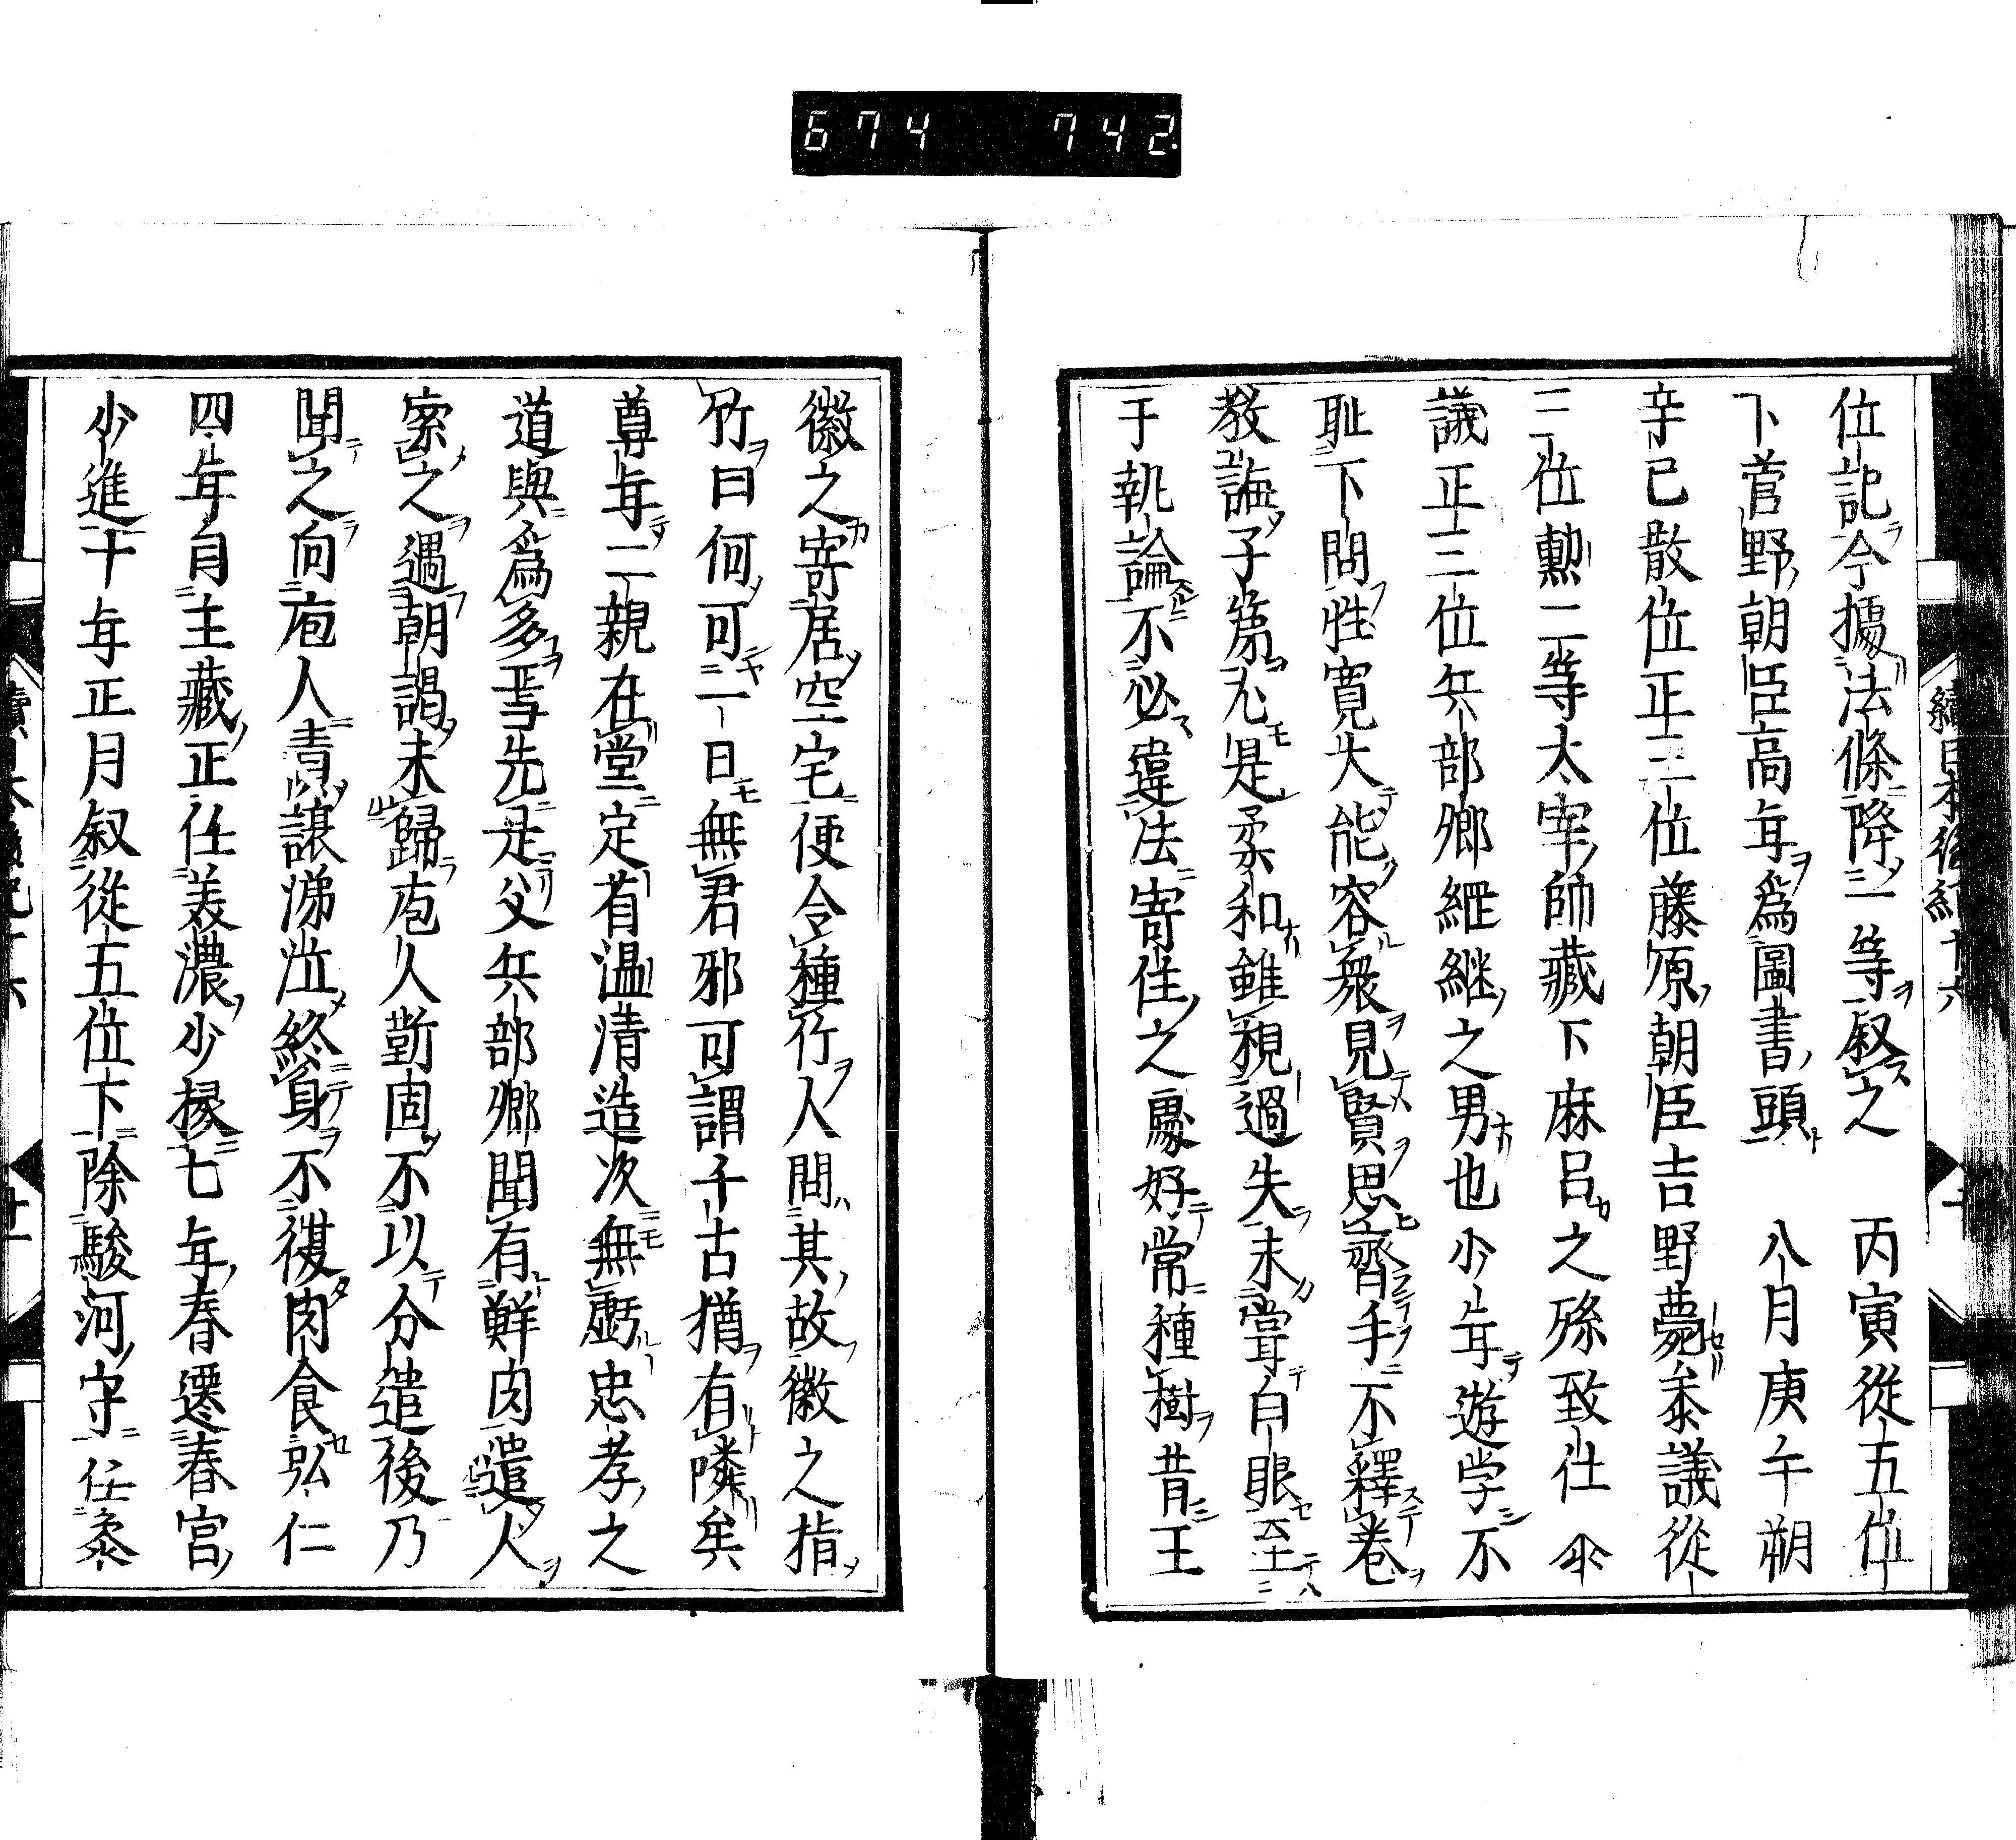 674 742
位記今據法條降二等叙之 丙寅從五位
下菅野朝臣高年爲圖書頭 八月庚午朔
辛巳散位正三位藤原朝臣吉野薨参議從
三位勲二等太宰帥藏下麻呂之孫致仕参
議正三位兵部郷綛継之男也少年遊学不
耻下問性寛大能容衆見賢思齊手不釋卷
教誨子弟凡是柔和雖視過失未甞白眼至
于執論不必違法寄住之處好常種樹昔王
徽之寄居空宅便令種竹人問其故徽之指
竹曰何可一日無君邪可謂千古猶有隣矣
尊年二親在堂定省温清造次無虧忠孝之
道與爲多焉先是父兵部郷聞有鮮肉遣人
索之遇朝謁未歸庖人靳固不以分遣後乃
聞之向庖人責譲涕泣終身不復肉食弘仁
四年自主藏正任美濃少掾七年春遷春宮
少進十年正月叙從五位下除駿河守任参
續日本後紀十六